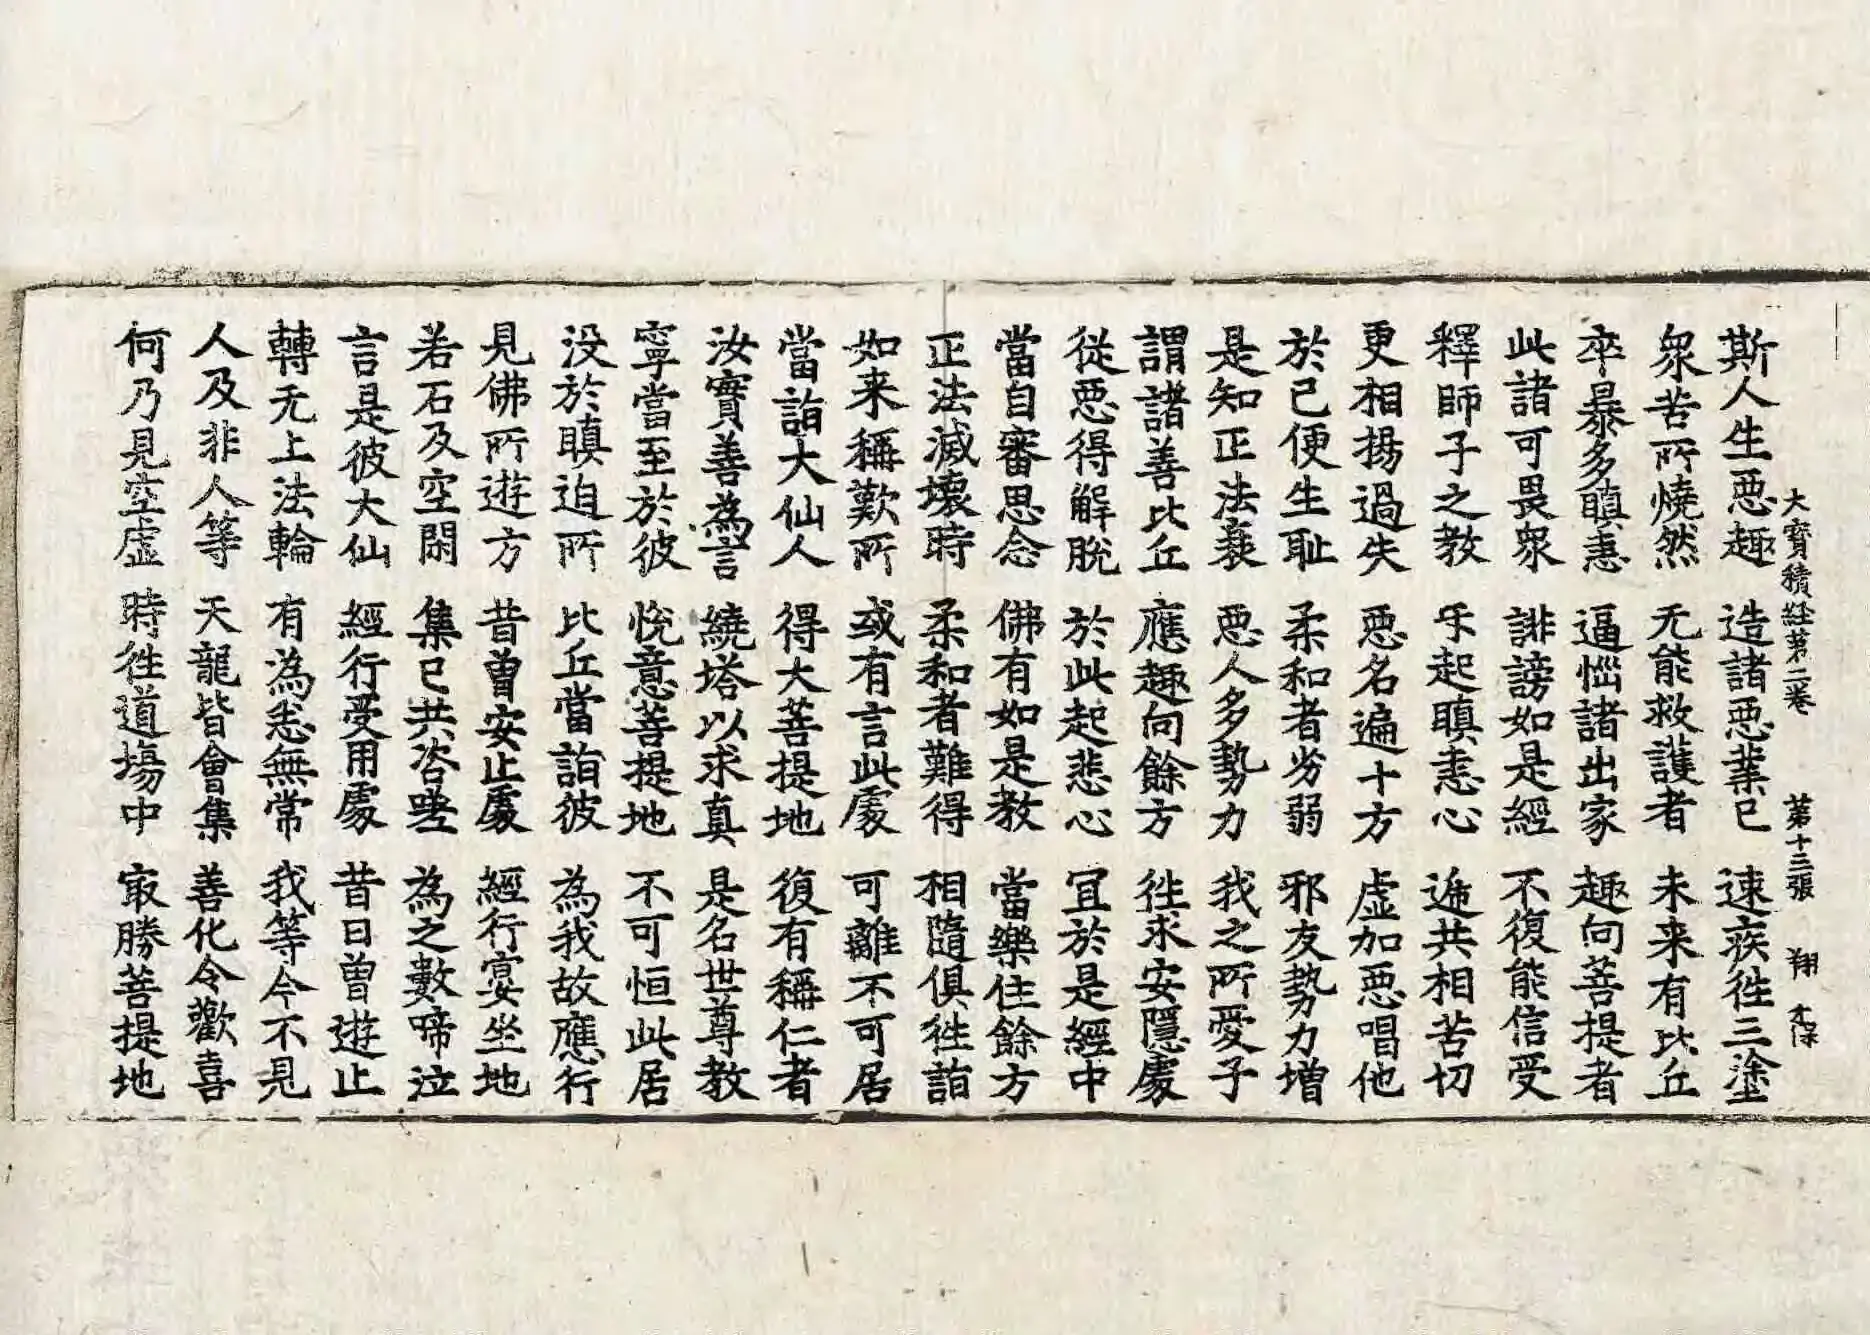 大寶積経苐二卷 苐十三張 翔
斯人生惡趣 造諸惡業已 速疾徃三塗
衆苦所燒然 无能救護者 未来有比丘
卒暴多瞋恚 逼惱諸出家 趣向菩提者
此諸可畏衆 誹謗如是經 不復能信受
釋師子之教 㸦起瞋恚心 遞共相苦切
更相揚過失 惡名遍十方 虚加惡唱他
於已便生耻 柔和者劣弱 邪友勢力增
是知正法衰 惡人多勢力 我之所愛子
謂諸善比丘 應趣向餘方 徃求安隱處
從惡得解脫 於此起悲心 冝於是經中
當自審思念 佛有如是教 當樂住餘方
正法滅壞時 柔和者難得 相隨俱徃詣
如来稱歎所 或有言此處 可離不可居
當詣大仙人 得大菩提地 復有稱仁者
汝實善為言 繞塔以求真 是名世尊教
寧當至於彼 悅意菩提地 不可恒此居
没於瞋迫所 比丘當詣彼 為我故應行
見佛所遊方 昔曽安止處 經行宴坐地
若石及空閑 集已共咨嗟 為之數啼泣
言是彼大仙 經行受用處 昔日曽遊止
轉无上法輪 有為悉無常 我等今不見
人及非人等 天龍皆會集 善化令歡喜
何乃見空虚 時徃道塲中 㝡勝菩提地